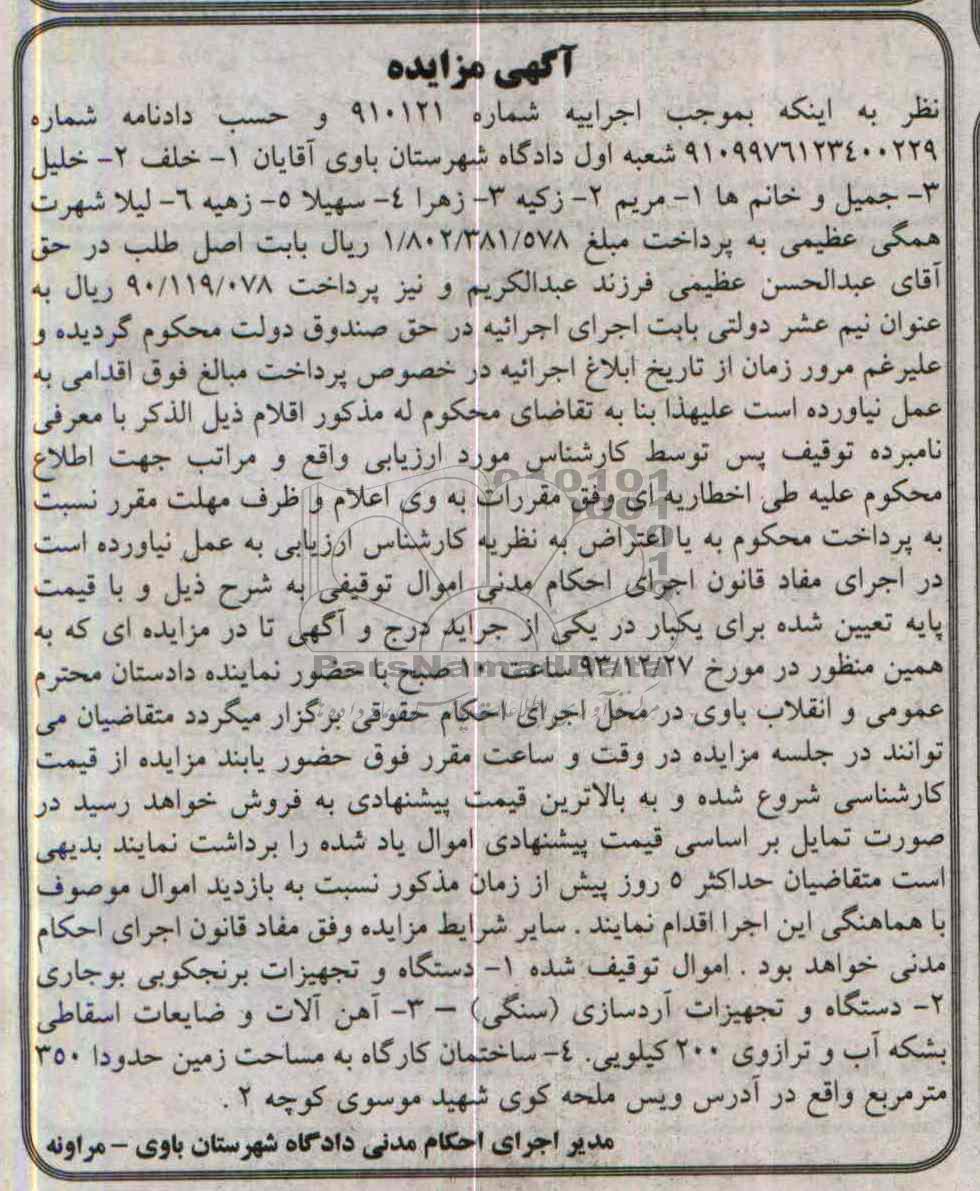 آگهی مزایده
نظر به اینکه بموجب اجراییه شماره ۹۱۰۱۲۱ و حسب دادنامه شماره
۹۱۰۹۹۷۶۱۲۳٤۰۰۲۲۹ شعبه اول دادگاه شهرستان باوی آقایان ۱- خلف ۲- خلیل
۳- جمیل و خانم ها ۱- مریم ۲- زکیه ۳- زهرا ٤- سهیلا ٥- زهیه ٦- لیلا شهرت
همگی عظیمی به پرداخت مبلغ ۱/۸۰۲/۳۸۱/٥۷۸ ریال بابت اصل طلب در حق
آقای عبدالحسن عظیمی فرزند عبدالکریم و نیز پرداخت ۹۰/۱۱۹/۰۷۸ ریال به
عنوان نیم عشر دولتی بابت اجرای اجرائیه در حق صندوق دولت محکوم گردیده و
علیرغم مرور زمان از تاریخ ابلاغ اجرائیه در خصوص پرداخت مبالغ فوق اقدامی به
عمل نیاورده است علیهذا بنا به تقاضای محکوم له مذکور اقلام ذیل الذکر با معرفی
نامبرده توقیف پس توسط کارشناس مورد ارزیابی واقع و مراتب جهت اطلاع
محکوم علیه طی اخطاریه ای وفق مقررات به وی اعلام و ظرف مهلت مقرر نسبت
به پرداخت محکوم به یا اعتراض به نظریه کارشناس ارزیابی به عمل نیاورده است
در اجرای مفاد قانون اجرای احکام مدنی اموال توقیفی به شرح ذیل و با قیمت
پایه تعیین شده برای یکبار در یکی از جراید درج و آگهی تا در مزایده ای که به
همین منظور در مورخ ۹۳/۱۲/۲۷ ساعت ۱۰ صبح با حضور نماینده دادستان محترم
عمومی و انقلاب باوی در محل اجرای احکام حقوقی برگزار میگردد متقاضیان می
توانند در جلسه مزایده در وقت و ساعت مقرر فوق حضور یابند مزایده از قیمت
کارشناسی شروع شده و به بالاترین قیمت پیشنهادی به فروش خواهد رسید در
صورت تمایل بر اساسی قیمت پیشنهادی اموال یاد شده را برداشت نمایند بدیهی
است متقاضیان حداکثر ٥ روز پیش از زمان مذکور نسبت به بازدید اموال موصوف
با هماهنگی این اجرا اقدام نمایند . سایر شرایط مزایده وفق مفاد قانون اجرای احکام
مدنی خواهد بود . اموال توقیف شده ۱- دستگاه و تجهیزات برنجکوبی بوجاری
۲- دستگاه و تجهیزات آردسازی (سنگی) – ۳- آهن آلات و ضایعات اسقاطی
بشکه آب و ترازوی ۲۰۰ کیلویی. ٤- ساختمان کارگاه به مساحت زمین حدودا ۳٥۰
مترمربع واقع در آدرس ویس ملحه کوی شهید موسوی کوچه ۲ .
مدیر اجرای احکام مدنی دادگاه شهرستان باوی – مراونه
ParsNamadData